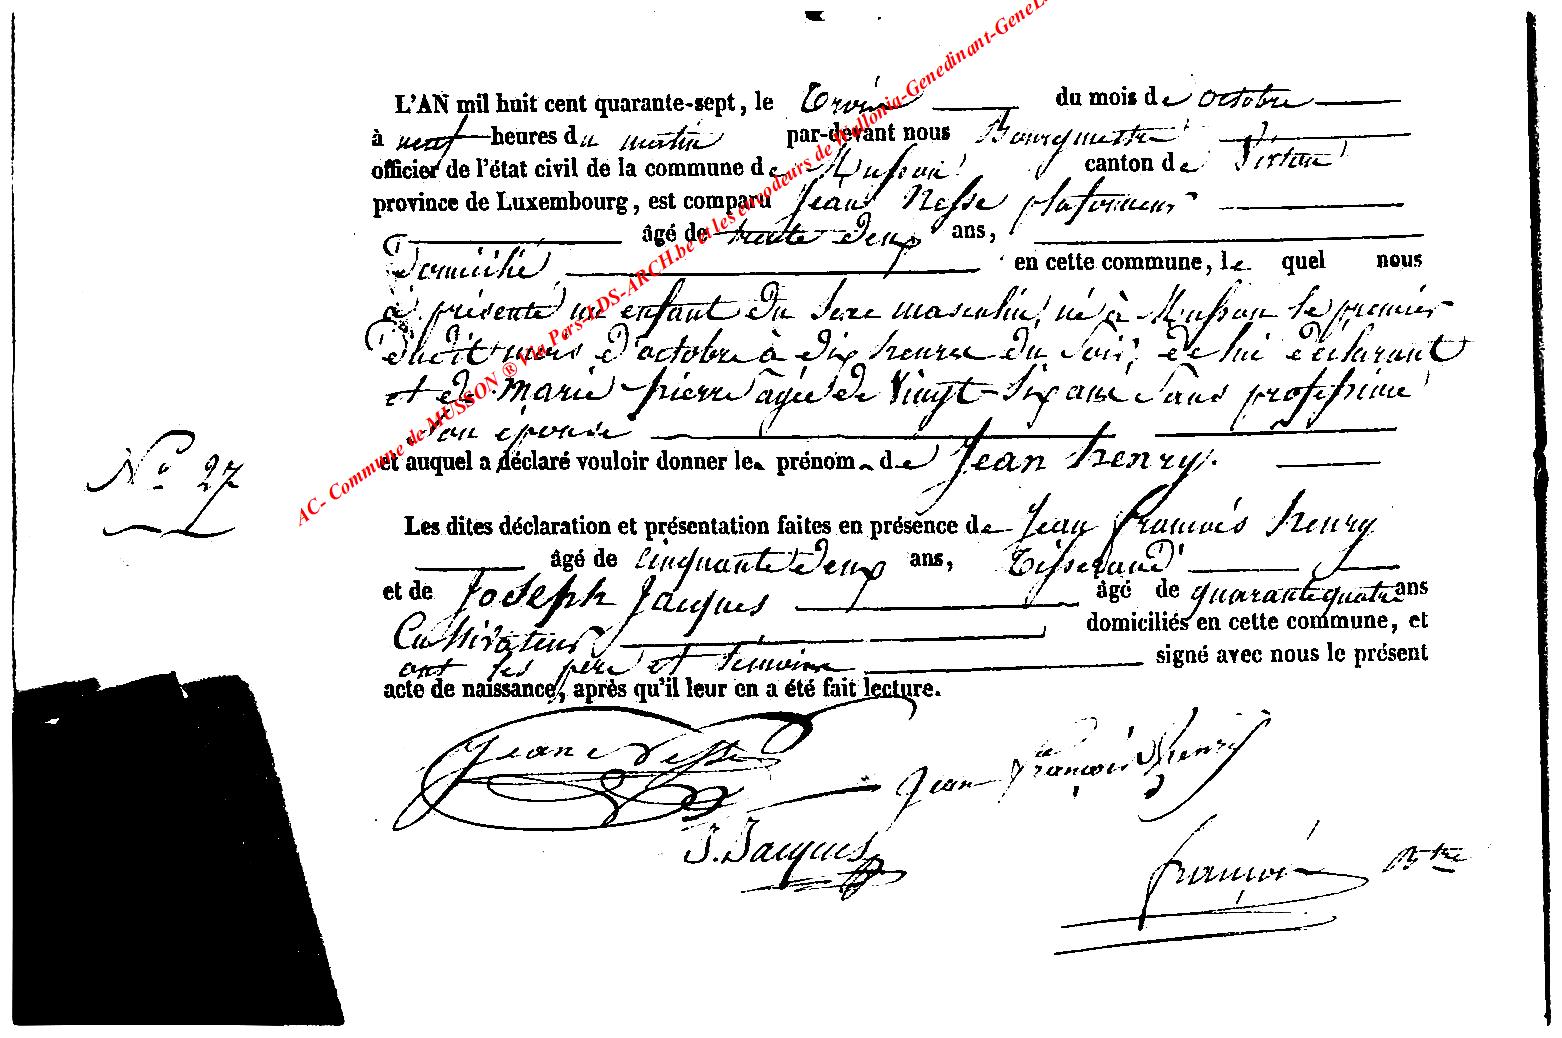 L'AN mil huit cent quarante-sept, le Trois du mois de octobre
à neuf heures du matin par-devant nous Bourgmestre
officier de l'état civil de la commune de Musson canton de Virton
province de Luxembourg, est comparu Jean Nesse plafonneur
âgé de trente deux ans,
Domicilié en cette commune, le quel nous
a présenté un enfant du sexe masculin, né à Musson le premier
dudit mois d'octobre à dix heures du soir, de lui déclarant
et de marie pierre âgée de vingt-six ans sans profession
son épouse
et auquel a déclaré vouloir donner le prénom de Jean henry.
N° 27
Les dites déclaration et présentation faites en présence de Jean françois henry
âgé de cinquante deux ans, Tisserand
et de Joseph Jacques âgé de quarante quatre ans
Cultivateur domiciliés en cette commune, et
ont les père et témoins signé avec nous le présent
acte de naissance, après qu'il leur en a été fait lecture.
Jean Nesse
Jean françois henry
J. Jacques
françois Btre
AC- Commune de MUSSON ® Via Pers-LDS-ARCH.be et les encodeurs de Wallonia-Genedinant-GeneL